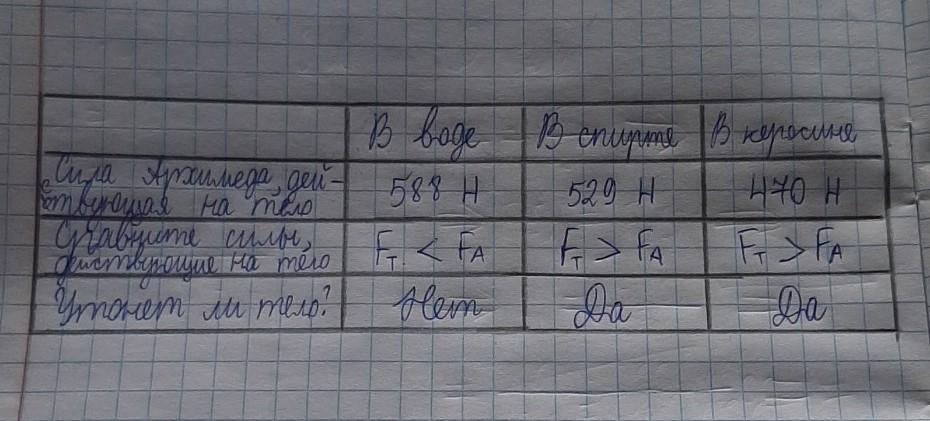 В воде В спирте В керосине
Сила Архимеда, дей-
ствующая на тело 588 Н 529 Н 470 Н
Сравните силы,
действующие на тело Fт < FА Fт > FА Fт > FА
Утонет ли тело? Нет Да Да